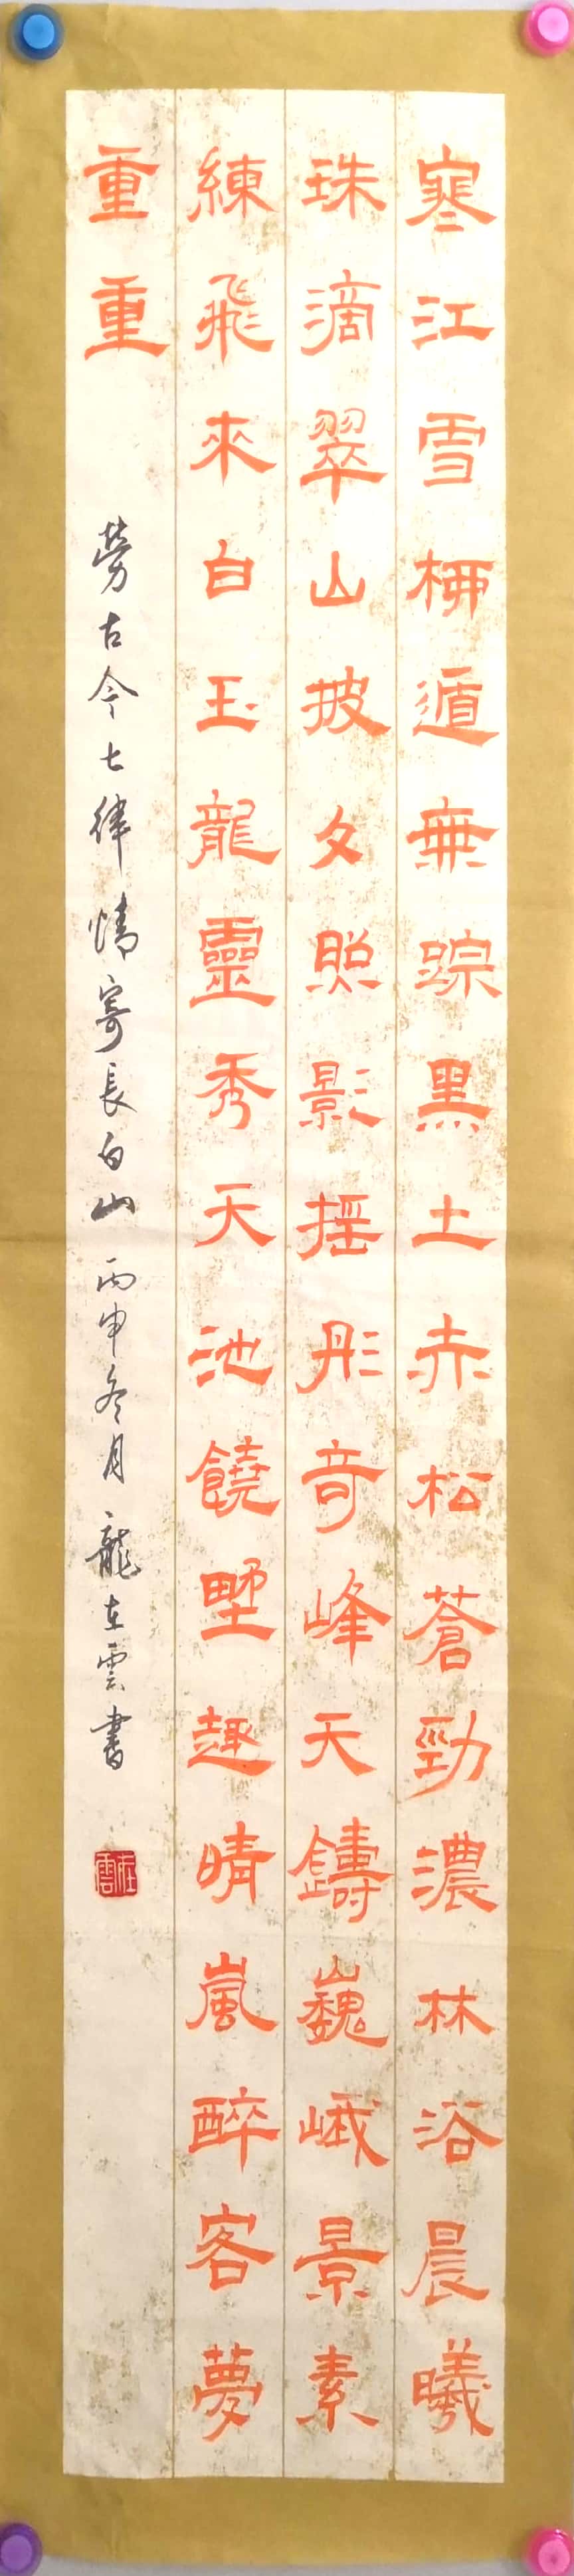 寒江雪柳遁無踪黑土赤松蒼勁濃林浴晨曦
珠滴翠山披夕照影摇彤奇峰天鑄巍峨景素
練飛來白玉龍靈秀天池饒野趣晴嵐醉客夢
重重
勞古今七律情寄長白山 丙申冬月 龍在雲書
在雲